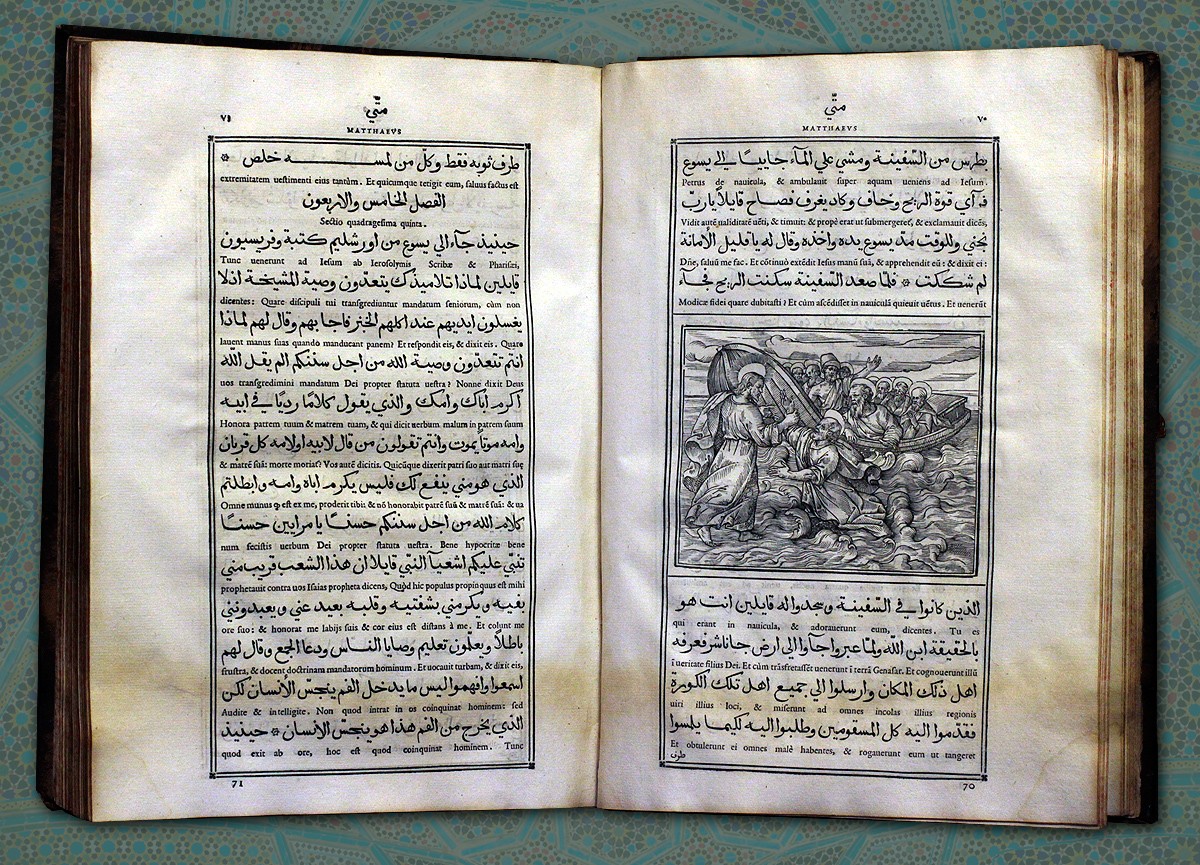 متّي
٧٠
MATTHAEVS
بطرس من السّفينة ومشي علي المآء جاييًا الي يسوع
Petrus de nauicula, & ambulauit super aquam ueniens ad Iesum.
فرآي قوة الريح وخاف وكاد يغرف فصاح قايلاً يا ربّ
Vidit autē ualiditatē uēti, & timuit: & propè erat ut submergeret, & exclamauit dicēs,
نجّني وللوقت مدّ يسوع يده واخذه وقال له يا قليل الأمانة
Dñe, saluū me fac. Et cōtinuò extēdit Iesus manū suā, & apprehendit eū: & dixit ei:
لم شككت ۞ فلمّا صعد السّفينة سكنت الريح فجآء
Modicæ fidei quare dubitasti? Et cùm ascēdisset in nauiculā quieuit uētus. Et uenerūt
الذين كانوا في السّفينة وسجدوا له قايلين انت هو
qui erant in nauicula, & adorauerunt eum, dicentes. Tu es
بالحقيقة ابن اللّه ولمّا عبروا جآوا الي ارض جاناشر فعرفه
ī ueritate filius Dei. Et cùm trāsfretassēt uenerunt ī terrā Genasar. Et cognouerunt illū
اهل ذلك المكان وارسلوا الي جميع اهل تلك الكورة
uiri illius loci, & miserunt ad omnes incolas illius regionis
فقدّموا اليه كل المسقومين وطلبوا اليه لكيما يلسوا
Et obtulerunt ei omnes malè habentes, & rogauerunt eum ut tangeret
طرف
70
متّي
٧١
MATTHAEVS
طرف ثوبه فقط وكلّ من لمسه خلص ۞
extremitatem uestimenti eius tantùm. Et quicumque tetigit eum, saluus factus est
الفصل الخامس والاربعون
Sectio quadragesima quinta.
حينيذ جآء الي يسوع من اورشليم كتبة وفريسيون
Tunc uenerunt ad Iesum ab Ierosolymis Scribæ & Pharisæi,
قايلين لماذا تلاميذك يتعدّون وصية المشيخة اذ لا
dicentes: Quare discipuli tui transgrediuntur mandatum seniorum, cùm non
يغسلون ايديهم عند اكلهم الخبز فاجابهم وقال لهم لماذا
lauent manus suas quando manducant panem? Et respondit eis, & dixit eis. Quare
انتم تتعدّون وصية اللّه من اجل سننكم الم يقل اللّه
uos transgredimini mandatum Dei propter statuta uestra? Nonne dixit Deus
آكرم اباك وامك والذي يقول كلامًا رديًا في ابيه
Honora patrem tuum & matrem tuam, & qui dicit uerbum malum in patrem suum
وامه موتًا يموت وانتم تقولون من قال لابيه اولامه كل قربان
& matrē suā: morte moriat? Vos autē dicitis. Quicūque dixerit patri suo aut matri suę
الذي هو مني ينفع لك فليس يكرم اباه وامه وابطلتم
Omne munus qđ est ex me, proderit tibi & nō honorabit patrē suū & matrē suā: & ua
كلام اللّه من اجل سننكم حسنًا يا مرايين حسنًا
num fecistis uerbum Dei propter statuta uestra. Bene hypocritæ bene
تنبّي عليكم اشعيآ النّبي قايلا ان هذا الشعب قريب مني
prophetauit contra uos Isaias propheta dicens, Quòd hic populus propinquus est mihi
بفيه ويكرمني بشفتيه وقلبه بعيد عني ويعبدونني
ore suo: & honorat me labijs suis & cor eius est distans à me. Et colunt me
باطلاً ويعلّمون تعليم وصايا النّاس ودعا الجمع وقال لهم
frustra, & docent doctrinam mandatorum hominum. Et uocauit turbam, & dixit eis,
اسمعوا وافهموا ليس ما يدخل الفم ينجّس الأنسان لكن
Audite & intelligite. Non quod intrat in os coinquinat hominem: sed
الذي يخرج من الفم هذا هو ينجّس الأنسان ۞ حينيذ
quod exit ab ore, hoc est quod coinquinat hominem. Tunc
71